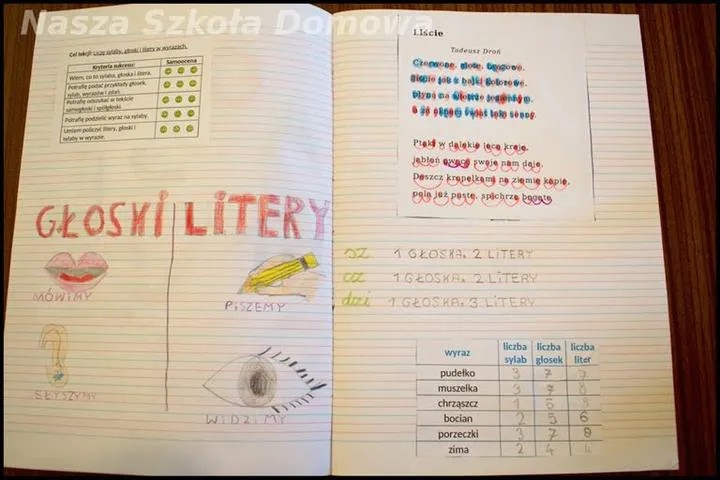 Nasza Szkoła Domowa
Cel lekcji: Liczę sylaby, głoski i litery w wyrazach.
Kryteria sukcesu: Samoocena
Wiem, co to sylaba, głoska i litera.
Potrafię podać przykłady głosek, sylab, wyrazów i zdań.
Potrafię odszukać w tekście samogłoski i spółgłoski.
Potrafię podzielić wyraz na sylaby.
Umiem policzyć litery, głoski i sylaby w wyrazie.
GŁOSKI LITERY
MÓWIMY
PISZEMY
SŁYSZYMY
WIDZIMY
Liście
Tadeusz Droń
Czerwone, złote, brązowe,
liście jak z bajki kolorowe,
płyną na wietrze jesiennym,
Ptaki w dalekie lecą kraje,
jabłoń owoce swoje nam daje.
Deszcz kropelkami na ziemię kapie,
pola już puste, spichrze bogate.
sz 1 GŁOSKA, 2 LITERY
cz 1 GŁOSKA, 2 LITERY
dzi 1 GŁOSKA, 3 LITERY
wyraz liczba sylab liczba głosek liczba liter
pudełko 3 7 7
muszelka 3 7 8
chrząszcz 1 5 9
bocian 2 5 6
porzeczki 3 7 9
zima 2 4 4